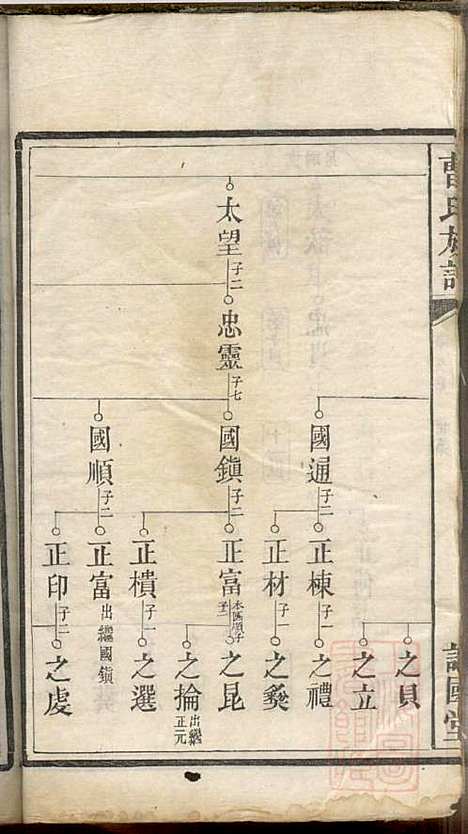 曹氏族譜
譜國堂
太望 子二
忠靈 子七
國通 子二
國鎮 子二
國順 子二
正棟 子一
正材 子一
正富 本國順子 子二
正樻 子一
正富 出繼國鎮
正印 子二
之貝
之立
之禮
之奏
之昆
之掄 出繼正元
之選
之虔